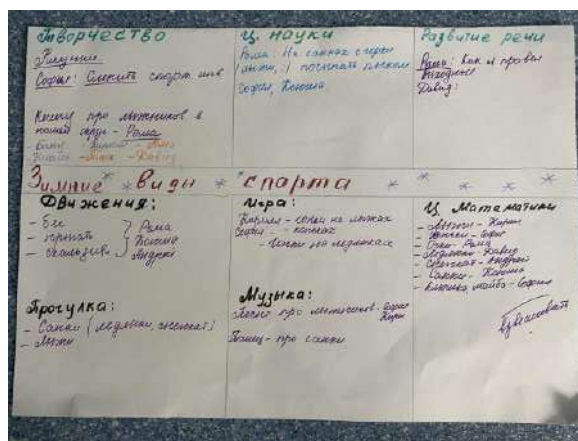 Творчество
Рисунки
Софья: Слепить спорт. инв
Книгу про лыжников в
нашей округ - Рома
Ц. науки
Рома: На санках с горы
(лыжи,:) посыпать песком
Софья, Ксюша
Развитие речи
Рома: Как я провел
выходные
Давид:
Зимние * виды * спорта * * * * *
Движения:
- Бег
- прыгать
- скользить
Рома
Ксюша
Андрей
Прогулка:
- Санки (ледянки, снегокат)
- Лыжи
Игра:
Кирилл - гонки на лыжах
Софья - коньках
- Гонки на ледянках
Музыка:
Песню про лыжников - София
Танец - про санки
Ц Математики
- Лыжи - Кирилл
- Коньки - Софья
- Очки - Рома
- Ледянки - Давид
- Снегокат - Андрей
- Санки - Ксюша
- Клюшка, шайба - София
Взвешивать